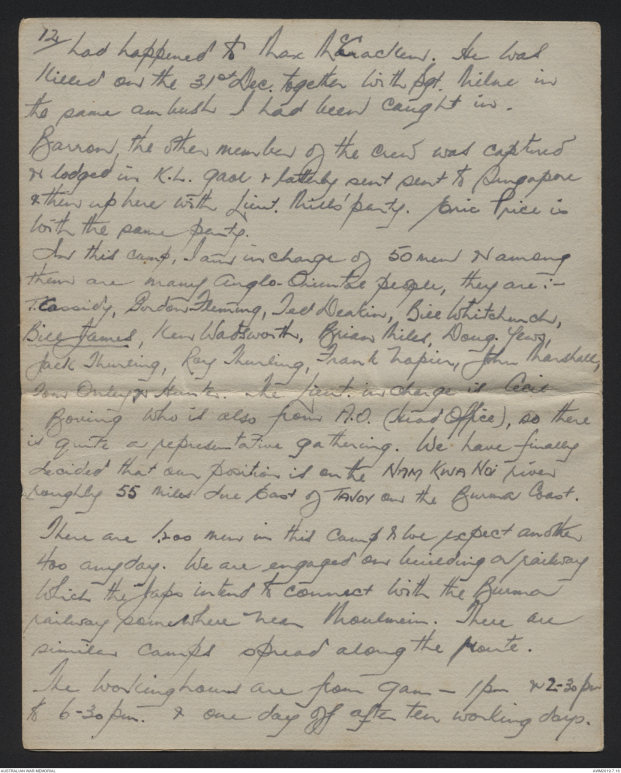 12/
had happened to Max McCracken. He was
killed on the 31st Dec. together with Sgt. Milne in
the same ambush I had been caught in.
Barron, the other member of the crew was captured
& lodged in K.L. gaol & latterly sent sent to Singapore
& then up here with Lieut. Miles' party. Eric Price is
with the same party.
In this camp, I am in charge of 50 men & among
them are many Anglo-Oriental people, they are:-
T. Cassidy, Gordon Fleming, Ted Deakin, Bill Whitchurch,
Bill James, Ken Wadsworth, Brian Miles, Doug. Yews,
Jack Thurling, Ray Thurling, Frank Napier, John Marshall,
Tom Onley & Hunter. The Lieut. in charge is Cecil
Boving who is also from A.O. (Head Office), so there
is quite a representative gathering. We have finally
decided that our position is on the NAM KWA NOI river
roughly 55 miles due East of TAVOY on the Burma Coast.
There are 1200 men in this camp & we expect another
400 any day. We are engaged on building a railway
which the Japs intend to connect with the Burma
railway somewhere near Moulmein. There are
similar camps spread along the route.
The working hours are from 9am - 1pm & 2-30pm
to 6-30pm. & one day off after ten working days.
AUSTRALIAN WAR MEMORIAL